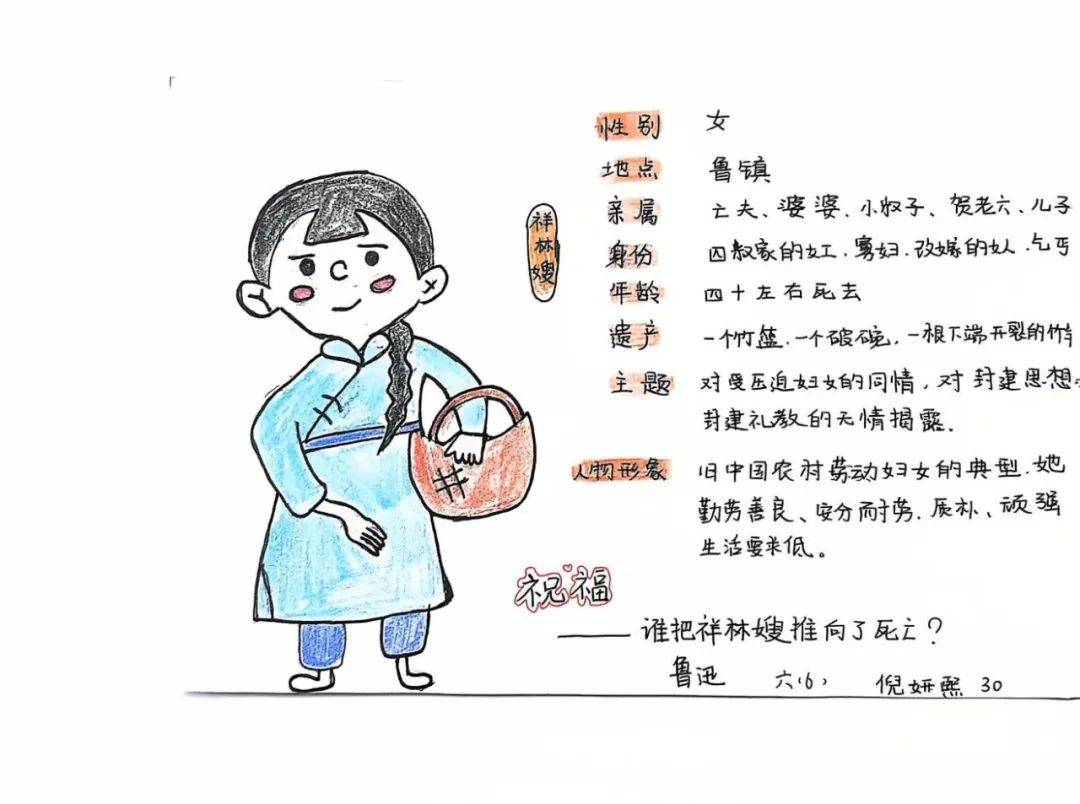 祥林嫂
性别 女
地点 鲁镇
亲属 亡夫、婆婆、小叔子、贺老六、儿子
身份 四叔家的女工、寡妇、改嫁的女人、乞丐
年龄 四十左右死去
遗产 一个竹蓝、一个破碗，一根下端开裂的竹
主题 对受压迫妇女的同情，对封建思想
封建礼教的无情揭露.
人物形象 旧中国农村劳动妇女的典型，她
勤劳善良、安分耐劳、质朴、顽强
生活要求低。
祝福
——谁把祥林嫂推向了死亡？
鲁迅 六（6） 倪妍熙 30